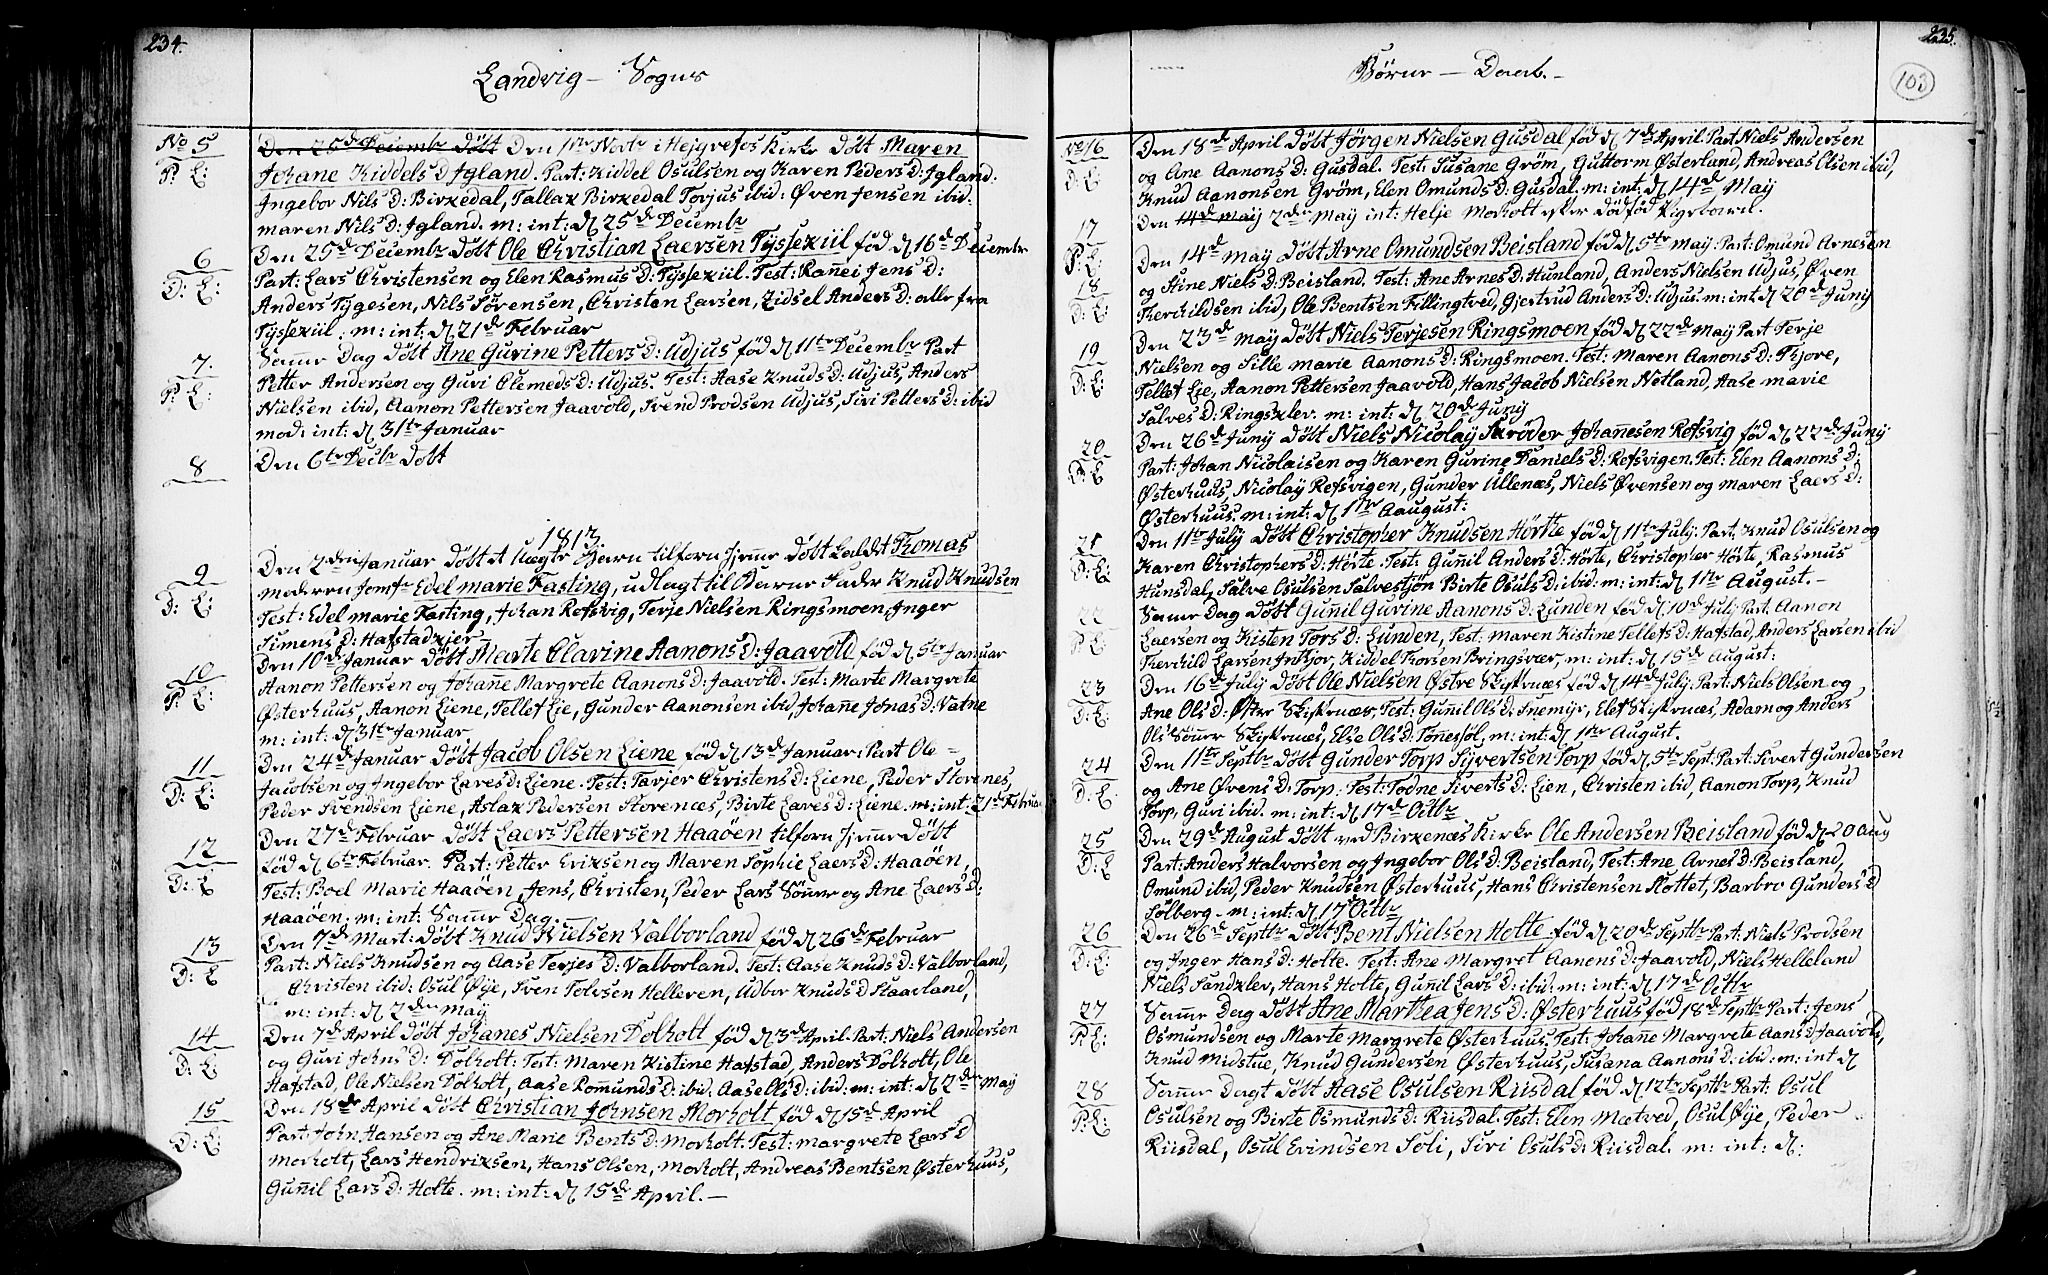 234.
Landvig – Sogns
No 5
P: E:
Den 26d Decembr Döbt Den 1te Novbr i Hejgrefos Kirke Döbt Maren
Johane Kiddels D Jgland. Part: Kiddel Osulsen og Karen Peders D: Jgland:
Jngebor Nils D: Birkedal, Tallak Birkedal Torjus ibid: Øven Jensen ibid:
maren Nils D: Jgland. m: int: d 25d Decembr
6
D: E:
Den 25d Decembr Döbt Ole Christian Laersen Tÿssekiil föd d 16d Decembr
Part: Lars Christensen og Elen Rasmus D: Tÿssekiil. Test: Rañei Jens D:
Anders Tÿgesen, Nils Sörensen, Christen Larsen, Zidsel Anders D: alle fra
Tÿssekiil: m: int: d 21d Februar
7.
P: E:
Samme Dag Döbt Ane Gurine Petters D: Udjus föd d 11te Decembr Part
Petter Andersen og Guri Olemeds D: Udjus. Test: Aase Knuds D: Udjus, Anders
Nielsen ibid, Aanon Pettersen Jaavold, Svend Prodsen Udjus, Siri Petters D: ibid
mod: int: d 31te Januar
8
Den 6te Decbr Döbt
1813.
9
D: E:
Den 2den Januar Döbt et Uægte Barn tilforn hjemme Döbt kaldt Thomas
moderen Jomfr Edel marie Fasting, udlagt til Barne Fader Knud Knudsen
Test: Edel marie Fasting, Johan Refsvig, Terje Nielsen Ringsmoen, Jnger
Simens D: Hafstadkjer
10
P: E:
Den 10d Januar Döbt Marte Clarine Aanons D: Jaavold, föd d 5te Januar
Aanon Pettersen og Johañe Margrete Aanons D: Jaavold. Test: Marte Margrete
Østerhuus, Aanon Liene, Tellef Lie, Gunder Aanonsen ibid, Johañe Jonas D: Vatne
m: int: d 31te Januar
11
D: E:
Den 24d Januar Döbt Jacob Olsen Liene, föd d 13d Januar: Part Ole
Jacobsen og Jngebor Lares D: Liene. Test: Tarjer Christens D: Liene, Peder Storenes,
Peder Svendsen Liene, Aslak Pedersen Storenæs, Birte Lares D: Liene. m: int: 21d Februar
12
D: E
Den 27d Februar Döbt Laers Pettersen Haaöen tilforn hjemme Döbt
föd d 6te Februar. Part: Petter Eriksen og Maren Sophie Laers D: Haaöen,
Test: Boel Marie Haaöen, Jens, Christen, Peder Lars Sönner og Ane Laers D:
Haaöen: m: int: Samme Dag.
13
D: E
Den 7d Mart: Döbt Knud Nielsen Valborland föd d 26d Februar
Part: Niels Knudsen og Aase Terjes D: Valborland. Test: Aase Knuds D: Valborland,
Christen ibid: Osul Øÿe, Sven Tolvsen Helleren, Udbor Knuds D Staarland,
m: int: d 2den maÿ
14
D: E:
Den 7d April Döbt Johanes Nielsen Dolholt föd d 3d April. Part: Niels Andersen
og Guri Johns D: Dolholt: Test: Maren Kistine Hafstad, Anders Dolholt, Ole
Hafstad, Ole Nielsen Dolholt, Aase Romunds D: ibid. Aase Olls D: ibid: m: int: d 2den maÿ
15
D: E:
Den 18de April Döbt Christian Johnsen Morholt, föd d 15d April
Part: John Hansen og Ane Marie Bents D: morholt: Test: margrete Lars D
morholt, Lars Hendriksen, Hans Olsen, morholt, Andreas Bentsen Østerhuus,
Guñil Lars D: Holte. m: int: d 15de April. –
235.
103
Börne – Daab. –
No 16
D: E:
Den 18d April Döbt Jörgen Nielsen Gusdal föd d 7d April. Part Niels Andersen
og Ane Aanons D: Gusdal. Test: Susane Gröm, Guttorm Østerland, Andreas Olsen ibid,
Knud Aanonsen Gröm, Elen Omunds D: Gusdal. m: int: d 14d Maÿ
17
P: E:
Den 14d maÿ 2den maÿ int: Helje Morholt efter Dödföd Pigebarn.
18
D: E:
Den 14d maÿ Döbt Arne Omundsen Beisland föd d 5te maÿ. Part: Omund Arnesen
og Stine Niels D: Beisland. Test: Ane Arnes D: Hunland, Anders Nielsen Udjus, Øven
Therchildsen ibid, Ole Bentsen Fillingtved, Gjertrud Anders D: Udjus. m: int d 20d Junÿ
19
D: E:
Den 23d maÿ Döbt Niels Terjesen Ringsmoen, föd d 22d maÿ Part Terje
Nielsen og Sille marie Aanons D: Ringsmoen. Test: Maren Aanons D: Thjore,
Tellef Lie, Aanon Pettersen Jaavold, Hans Jacob Nielsen Notland, Aase marie
Salves D: Ringsklev. m: int: d 20d Junÿ
20
D: E
Den 26d Junÿ Döbt Niels Nicolaÿ Skröder Johañesen Refsvig föd d 22d Junÿ
Part: Johan Nicolaisen og Karen Gurine Daniels D: Refsvigen. Test: Elen Aanons D:
Østerhuus, Nicolaÿ Refsvigen, Gunder Ullenæs, Niels Øvensen og maren Laers D:
Østerhuus. m: int: d 1te Aaugust:
21
D: E:
Den 11te Julÿ Döbt Christopher Knudsen Hörthe föd d 11te Julÿ: Part. Knud Osulsen og
Karen Christophers D: Hörte. Test: Guñil Anders D: Hörte, Christopher Hörte, Rasmus
Hunsdal, Salve Osulsen Salvestjön Birte Osuls D: ibid: m: int: d 1te August. –
22
P: E:
Samme Dag Döbt Guñil Gurine Aanons D: Lunden, föd d 10d Julÿ Part. Aanon
Laersen og Kisten Tors D: Lunden, Test: maren Kistine Tellefs D: Hafstad, Anders Larsen ibid
Therchild Larsen Jnthjor, Kiddel Thorsen Bringsvær, m: int: d 15d August:
23
D: E:
Den 16d Julÿ Döbt Ole Nielsen Østre Skifternæs föd d 14d Julÿ: Part: Niels Olsen og
Ane Ols D: Øster Skifternæs, Test: Guñil Ols D: Snemÿr, Elef Skifternæs, Adam og Anders
Ols Sönner Skifternæs, Else Ols D: Töñesöl, m: int: d 1te August.
24
D: E:
Den 11te Septbr Döbt Gunder Torp Sÿvertsen Torp föd d 5te Sept. Part: Sivert Gundersen
og Ane Øvens D: Torp: Test: Todne Siverts D: Lien, Christen ibid, Aanon Torp, Knud
Torp, Guri ibid. m: int: d 17d Octbr
25
D: E
Den 29d August Döbt ved Birkenæs Kirke Ole Andersen Beisland föd d 20 Aug
Part: Anders Halvorsen og Jngebor Ols D: Beisland, Test: Ane Arnes D: Beisland,
Omund ibid, Peder Knudsen Østerhuus, Hans Christensen Slottet, Barbro Gunders D
Sölberg – m: int: d 17d Octbr
26
D: E:
Den 26d Septbr Döbt Bent Nielsen Holte. föd d 20d Septbr Part: Niels Prodsen
og Jnger Hans D: Holte. Test: Ane Margret Aanons D: Jaavold, Niels Helleland
Niels Sandklev, Hans Holte, Guñil Lars D: ibid: m: int: d 17d Octbr
27
P: E:
Samme Dag Döbt Ane Marthea Jens D: Østerhuus föd 18d Septbr Part: Jens
Osmundsen og Marte Margrete Østerhuus, Test: Johañe Margrete Aans D: Jaavold,
Knud Midstue, Knud Gundersen Østerhuus, Susana Aanons D: ibid: m: int d
28
P: E:
Samme Dagt Döbt Aase Osulsen Riisdal föd d 12te Septbr Part: Osul
Osulsen og Birte Osmunds D: Riisdal. Test: Elen Mætved, Osul Øÿe, Peder
Riisdal, Osul Evindsen Soli, Siri Osuls D: Riisdal. m: int: d: